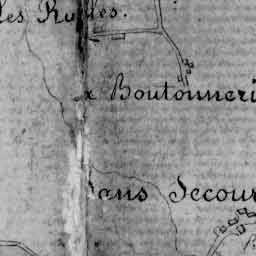 les Rulles.
x Boutonneri
Sans Secour